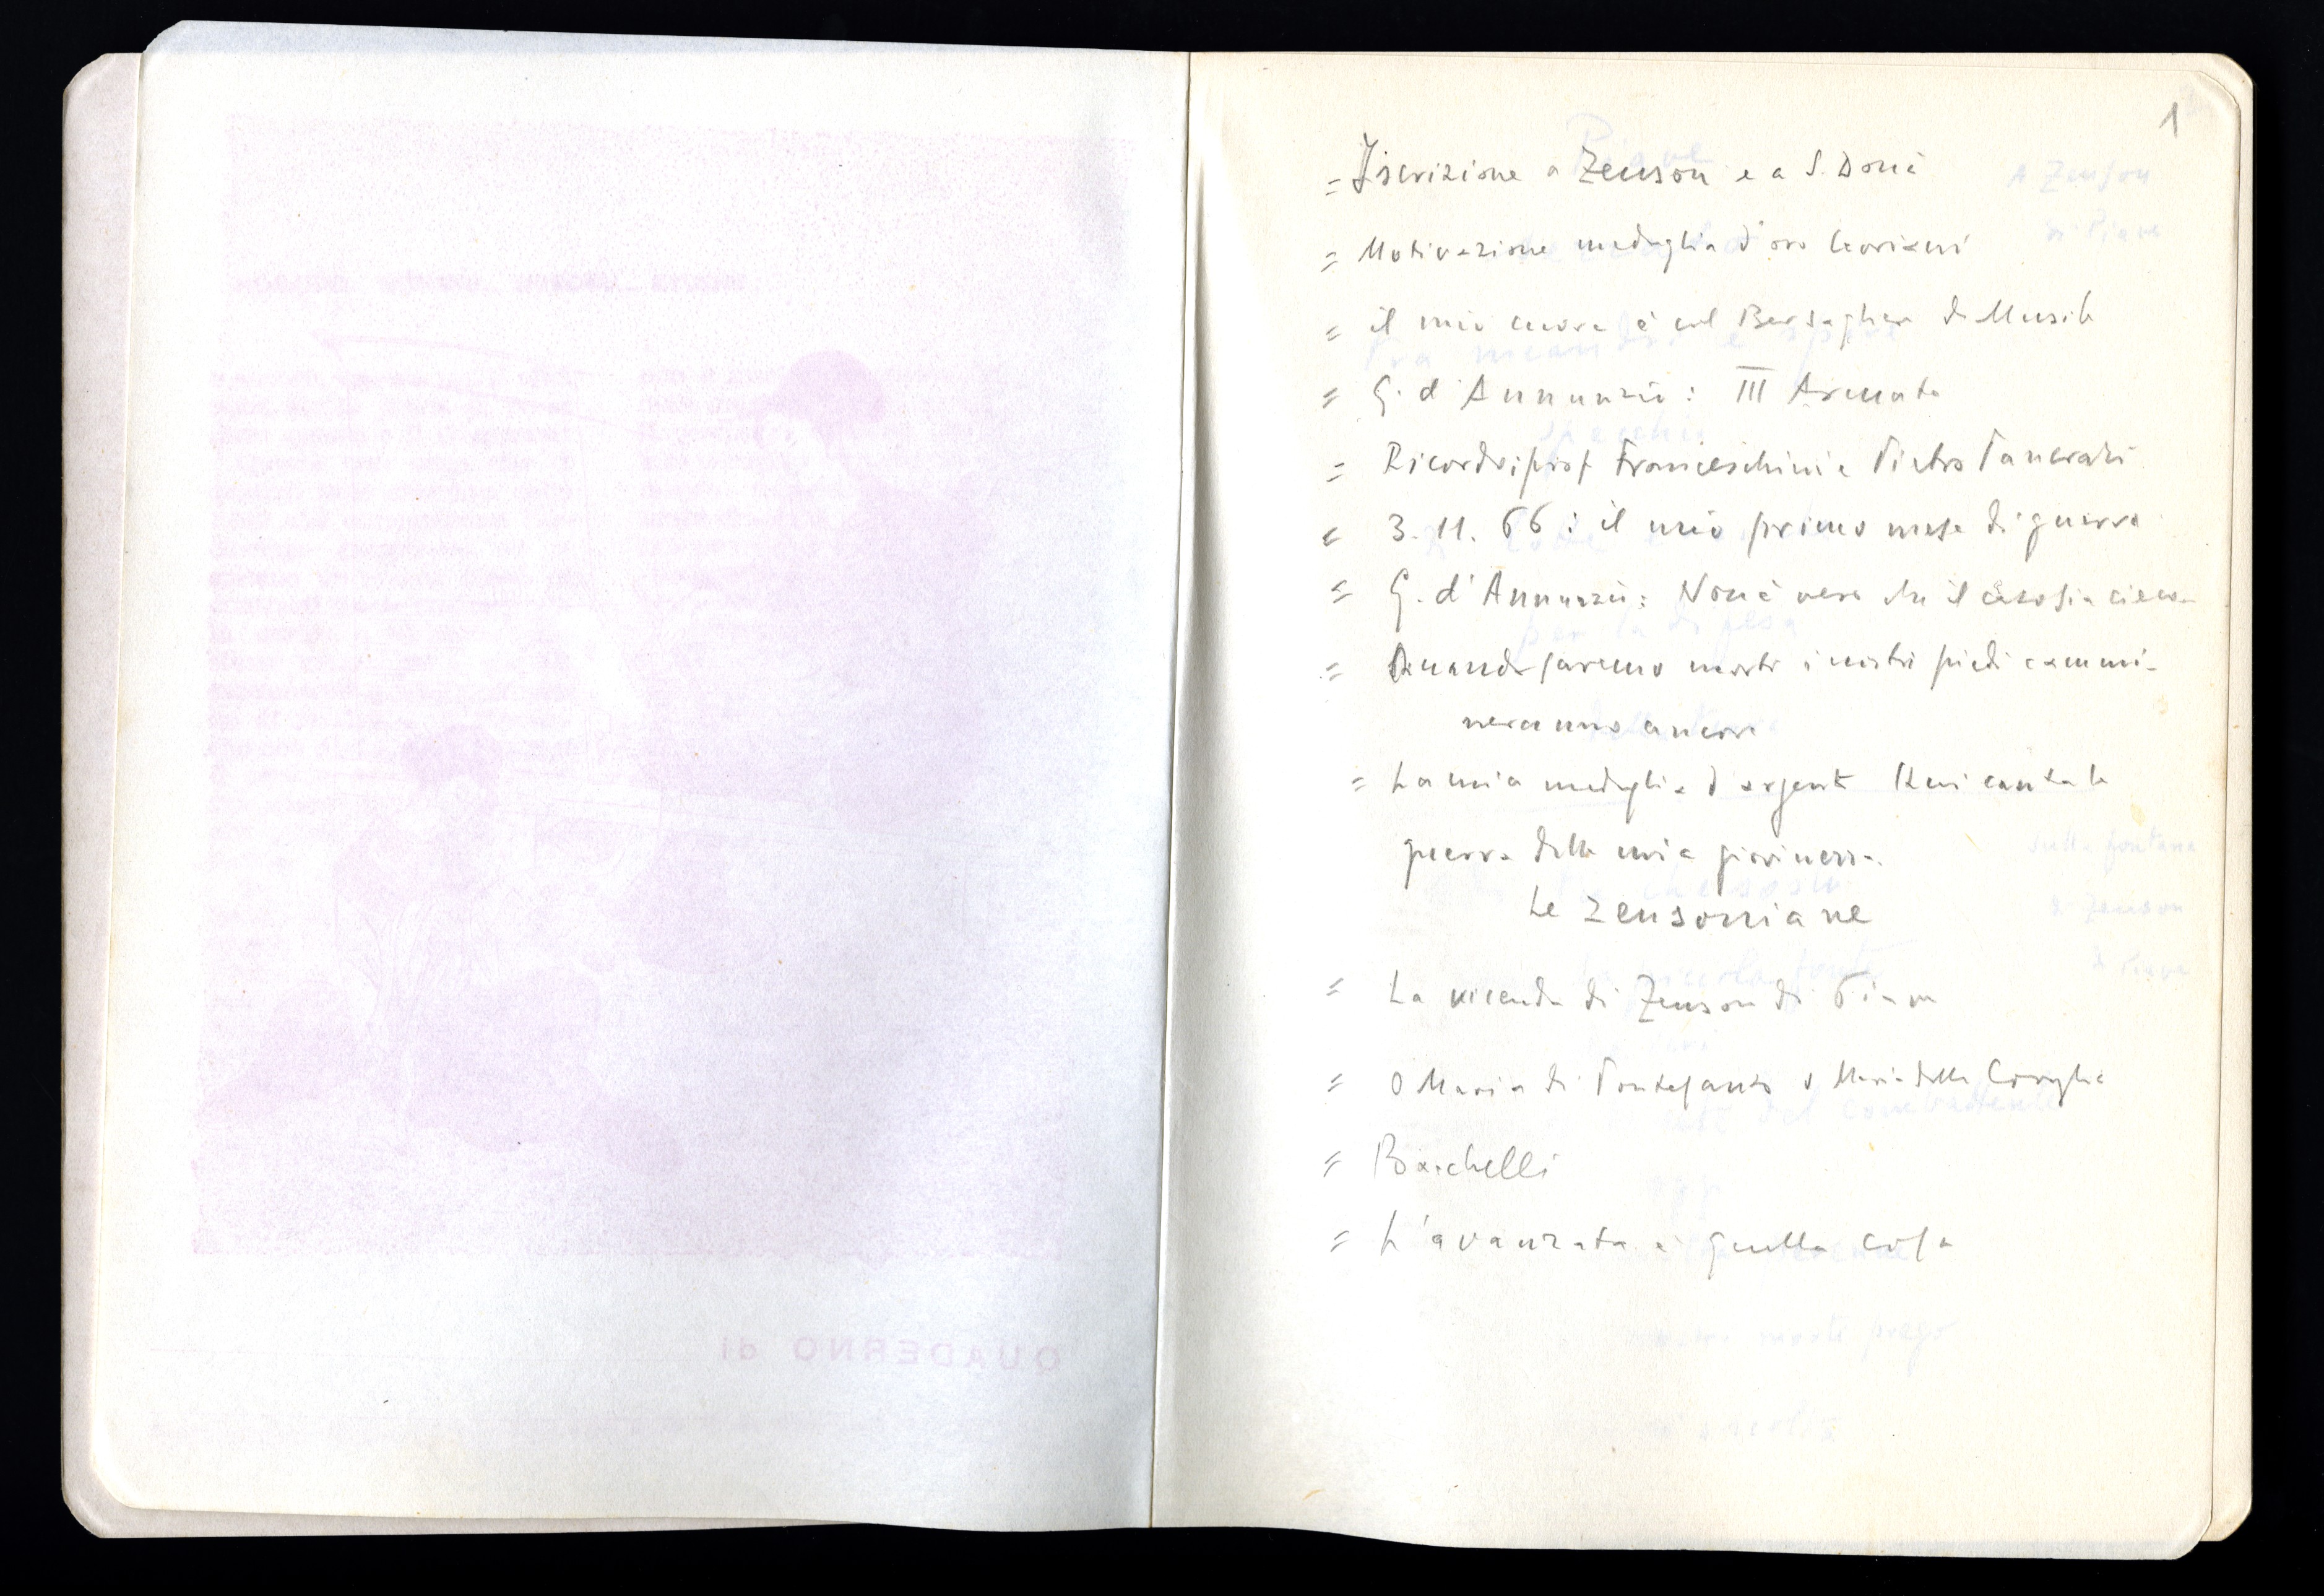 1
= Iscrizione a Zenson e a S. Donà
= Motivazione medaglia d'oro
= il mio cuore è col Bersagliere di Musile
= G. d'Annunzio: III Armata
= Ricordi prof Franceschini e Pietro Pancrazi
= 3. 11. 66: il mio primo mese di guerra
= G. d'Annunzio: Non è vero che il caso sia cieco
= Quando saremo morti i nostri piedi cammi-
neranno ancora
= La mia medaglia d'argento la
guerra della mia giovinezza.
Le zensoniane
= La vicenda di Zenson di Piave
= O Maria di o Maria della
= Bacchelli
= L'avanzata è quella cosa
QUADERNO di